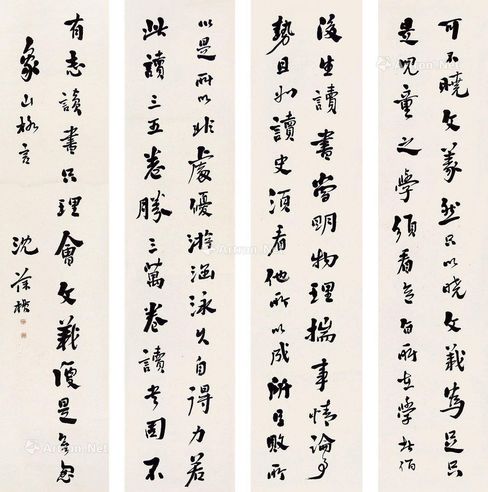 可不曉文義然只以曉文義為足只
是兒童之學須看意旨所在學者
後生讀書當明物理揣事情論事
勢且如讀史須看他所以成所以敗所
以是所以非處優游涵泳久自得力若
此讀三五卷勝三萬卷讀書固不
有志讀書只理會文義便是無志
象山格言
沈葆楨